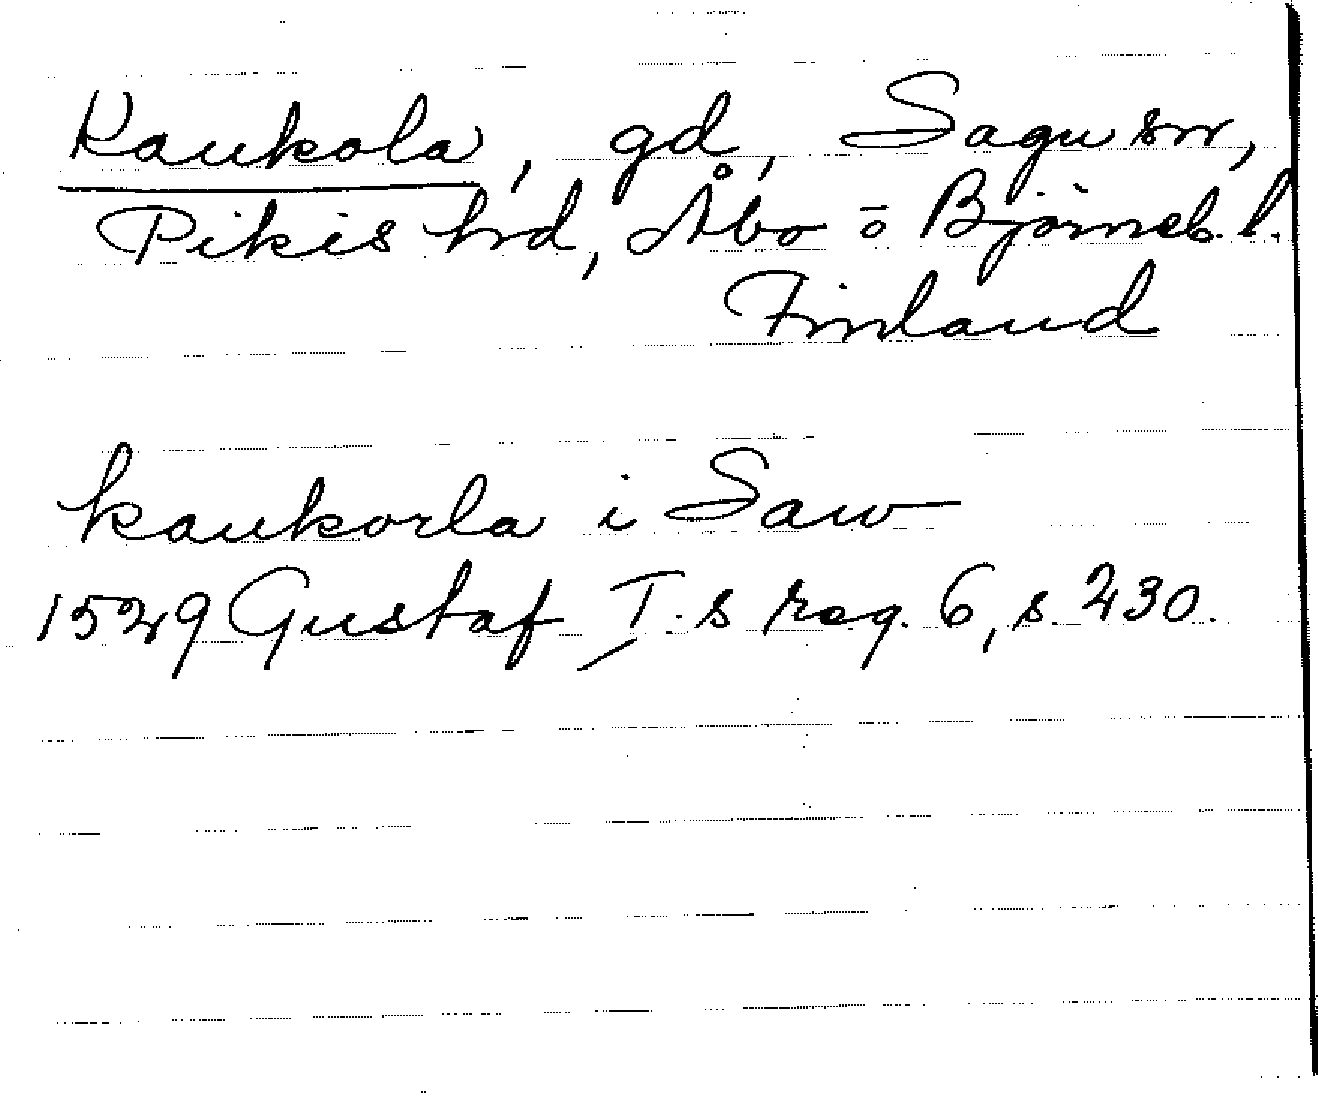 Kaukola, gd, Sagu sn,
Pikis hrd, Åbo o Björneb. l.
Finland
kaukorla i Saw
1529 Gustaf I.s reg. 6, s. 230.